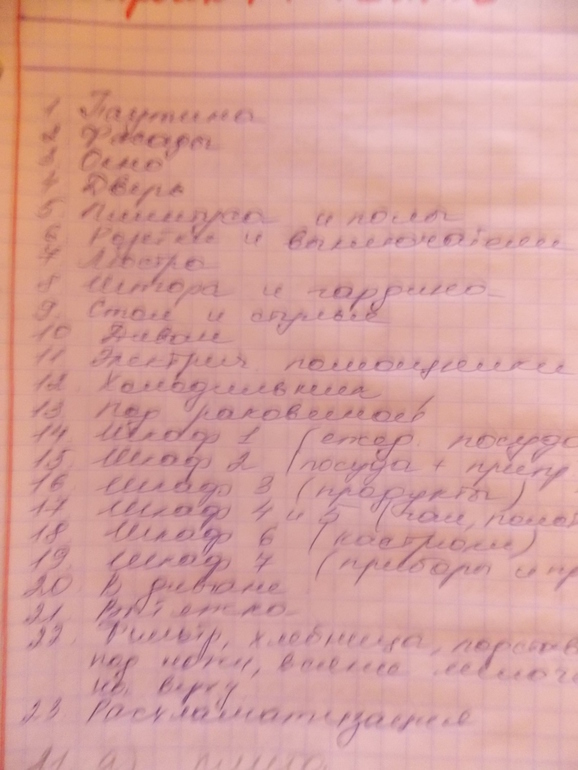 1 Паутина
2 Фасады
3. Окно
4. Дверь
5. Плинтуса и полы
6 Розетки и выключатели
7 Люстра
8 Штора и гардина
9. Стол и стулья
10 Диван
11 Электрич помощники
12. Холодильник
13 Под раковиной
14 Шкаф 1 (ежед. посуда
15. Шкаф 2 (посуда +
16 Шкаф 3 (продукты)
17 Шкаф 4 и 5 (чаи,
18 Шкаф 6 (кастрюли)
19. Шкаф 7 (приборы и пр
20 В диване
21. Вытяжка
22. Фильтр, хлебница, подстав
под ножи, всякие мелочи
на верху
23 Расхламатизация